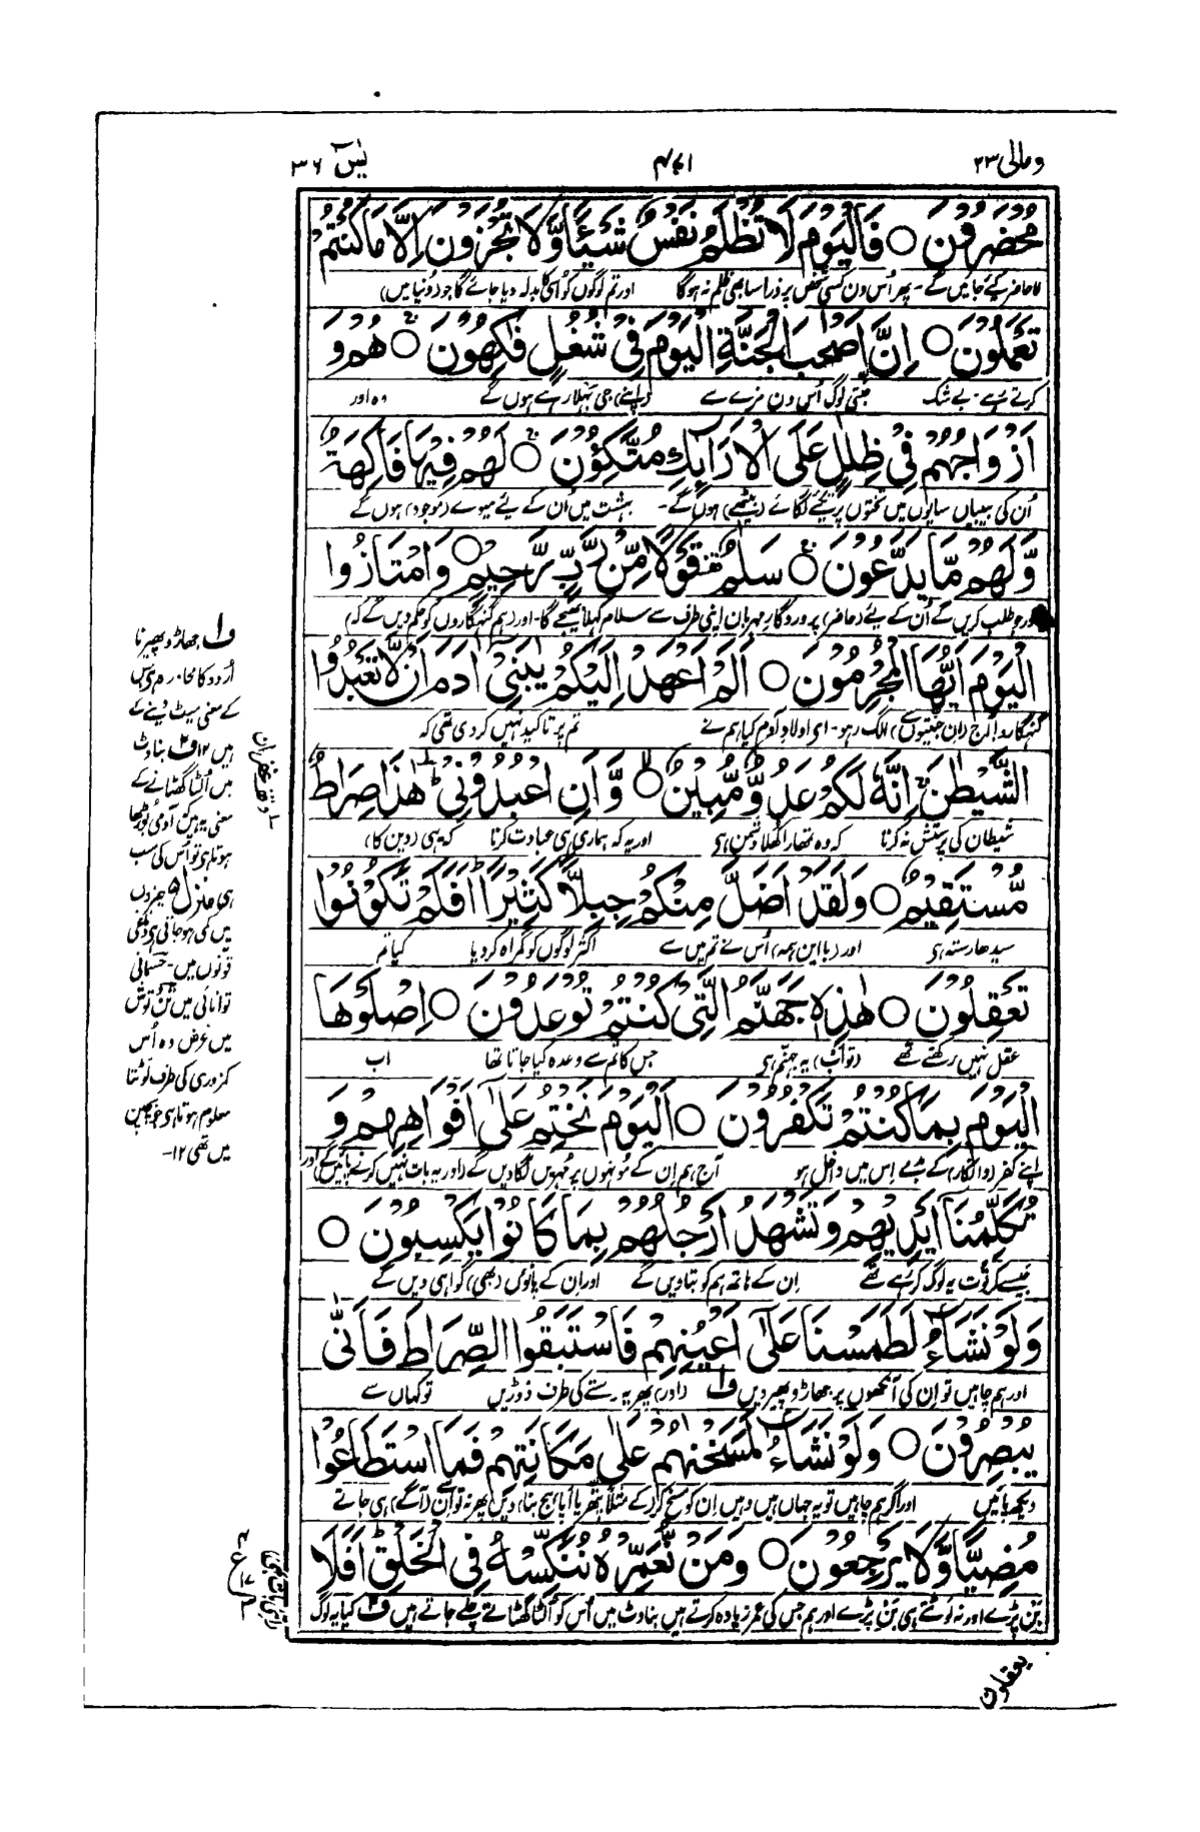 ومالی ۲۳
یٰسٓ ۳۶
مُحْضَرُوْنَ ○ فَالْيَوْمَ لَا تُظْلَمُ نَفْسٌ شَيْئًا وَّلَا تُجْزَوْنَ اِلَّا مَا كُنْتُمْ
حاضر کیے جائیں گے۔ پھر اُس دن کسی شخص پر ذرا سا بھی ظلم نہ ہوگا اور تم لوگوں کو اُسی کا بدلہ دیا جائے گا جو (دُنیا میں)
تَعْمَلُوْنَ ○ اِنَّ اَصْحٰبَ الْجَنَّةِ الْيَوْمَ فِيْ شُغُلٍ فٰكِهُوْنَ ○ هُمْ وَ
کرتے رہے۔ بے شک جنتی لوگ اُس دن مزے سے (اپنے) جی بہلا رہے ہوں گے وہ اور
اَزْوَاجُهُمْ فِيْ ظِلٰلٍ عَلَى الْاَرَآىِٕكِ مُتَّكِـُٔوْنَ ○ لَهُمْ فِيْهَا فَاكِهَةٌ
اُن کی بیبیاں سایوں میں تختوں پر تکیے لگائے (بیٹھے) ہوں گے۔ بہشت میں اُن کے لیے میوے (موجود) ہوں گے
وَّلَهُمْ مَّا يَدَّعُوْنَ ○ سَلٰمٌ قَوْلًا مِّنْ رَّبٍّ رَّحِيْمٍ ○ وَامْتَازُوا
اور جو طلب کریں گے اُن کے لیے (حاضر) پروردگار مہربان اپنی طرف سے سلام کہلا بھیجے گا۔ اور (ہم گنہگاروں کو حکم دیں گے کہ)
الْيَوْمَ اَيُّهَا الْمُجْرِمُوْنَ ○ اَلَمْ اَعْهَدْ اِلَيْكُمْ يٰبَنِيْٓ اٰدَمَ اَنْ لَّا تَعْبُدُوا
گنہگارو! آج (ان جنتیوں سے) الگ رہو۔ ای اولاد آدم کیا ہم نے تم پر تاکید نہیں کر دی تھی کہ
الشَّيْطٰنَ اِنَّهٗ لَكُمْ عَدُوٌّ مُّبِيْنٌ ○ وَّاَنِ اعْبُدُوْنِيْ هٰذَا صِرَاطٌ
شیطان کی پرستش نہ کرنا کہ وہ تمھارا کھلا دشمن ہی اور یہ کہ ہماری ہی عبادت کرنا کہ یہی (دین کا)
مُّسْتَقِيْمٌ ○ وَلَقَدْ اَضَلَّ مِنْكُمْ جِبِلًّا كَثِيْرًا اَفَلَمْ تَكُوْنُوْا
سیدھا رستہ ہی اور (با این ہمہ) اُس نے تم میں سے اکثر لوگوں کو گمراہ کر دیا کیا تم
تَعْقِلُوْنَ ○ هٰذِهٖ جَهَنَّمُ الَّتِيْ كُنْتُمْ تُوْعَدُوْنَ ○ اِصْلَوْهَا
عقل نہیں رکھتے تھے (تو اب) یہ جہنم ہی جس کا تم سے وعدہ کیا جاتا تھا اب
الْيَوْمَ بِمَا كُنْتُمْ تَكْفُرُوْنَ ○ اَلْيَوْمَ نَخْتِمُ عَلٰٓى اَفْوَاهِهِمْ وَ
اپنے کفر (و انکار) کے بدلے اِس میں داخل ہو آج ہم اِن کے مونہوں پر مُہریں لگا دیں گے (اور یہ بات نہیں کرنے پائیں گے) اور
تُكَلِّمُنَآ اَيْدِيْهِمْ وَتَشْهَدُ اَرْجُلُهُمْ بِمَا كَانُوْا يَكْسِبُوْنَ ○
جیسے کرتوت یہ لوگ کر رہے تھے اِن کے ہاتھ ہم کو بتا دیں گے اور اِن کے پانوں (بھی) گواہی دیں گے
وَلَوْ نَشَآءُ لَطَمَسْنَا عَلٰٓى اَعْيُنِهِمْ فَاسْتَبَقُوا الصِّرَاطَ فَاَنّٰى
اور ہم چاہیں تو اِن کی آنکھوں پر جھاڑو پھیر دیں ف۱ (اور) پھر یہ رستے کی طرف دوڑیں تو کہاں سے
يُبْصِرُوْنَ ○ وَلَوْ نَشَآءُ لَمَسَخْنٰهُمْ عَلٰى مَكَانَتِهِمْ فَمَا اسْتَطَاعُوْا
دیکھ پائیں اور اگر ہم چاہیں تو یہ جہاں ہیں وہیں اِن کو مسخ کر کے مثلاً پتھر یا اپاہج بنا دیں پھر نہ تو اُن سے (آگے) ہی جاتے
مُضِيًّا وَّلَا يَرْجِعُوْنَ ○ وَمَنْ نُّعَمِّرْهُ نُنَكِّسْهُ فِي الْخَلْقِ اَفَلَا
بن پڑے اور نہ لوٹتے ہی بن پڑے اور ہم جس کی عمر زیادہ کرتے ہیں بناوٹ میں اُس کو اُلٹا گھٹاتے چلے جاتے ہیں ف۲ کیا یہ لوگ
يعقلون
ف۱ جھاڑو پھیرنا
اُردو کا محاورہ ہی جس
کے معنی میٹ دینے کے
ہیں ۱۲ ف۲ بناوٹ
میں اُلٹا گھٹانے کے
معنی یہ ہیں کہ آدمی بوڑھا
ہوتا ہی تو اُس کی سب
ہی چیزوں
میں کمی ہو جاتی ہی
قوتوں میں۔ جسمانی
توانائی میں تن و توش
میں غرض وہ اُس
کمزوری کی طرف لَوٹتا
معلوم ہوتا ہی جو بچپن
میں تھی ۱۲۔